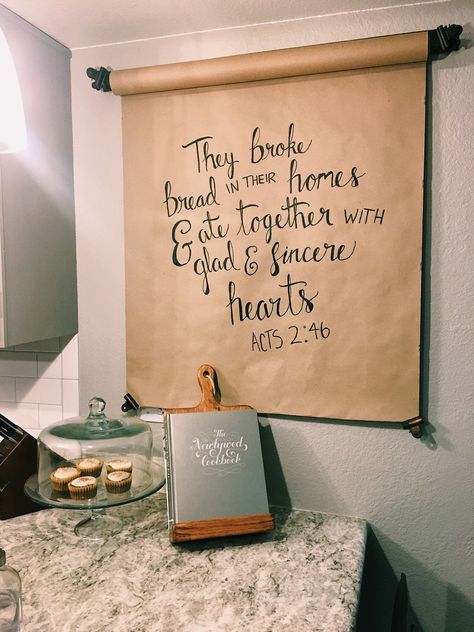 They broke
bread IN THEIR homes
& ate together WITH
glad & sincere
hearts
ACTS 2:46
The
Newlywed
Cookbook